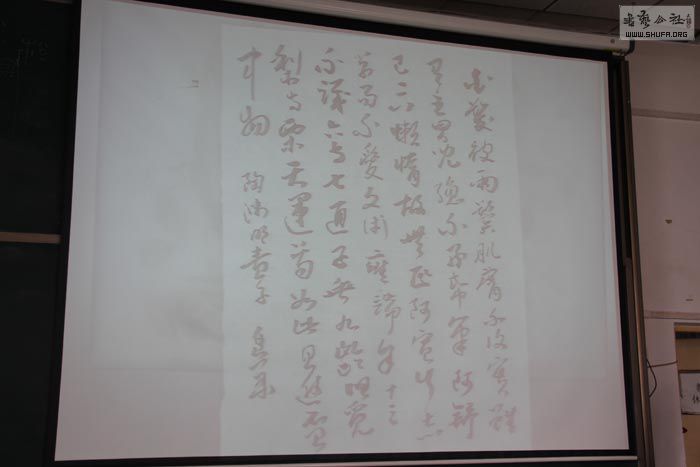 書藝公社
WWW.SHUFA.ORG
白髮被兩鬢肌膚不復實雖
有五男兒總不好紙筆阿舒
已二八懶惰故無匹阿宣行志
學而不愛文術雍端年十三
不識六與七通子垂九齡但覓
梨與栗天運苟如此且進杯
中物 陶淵明責子